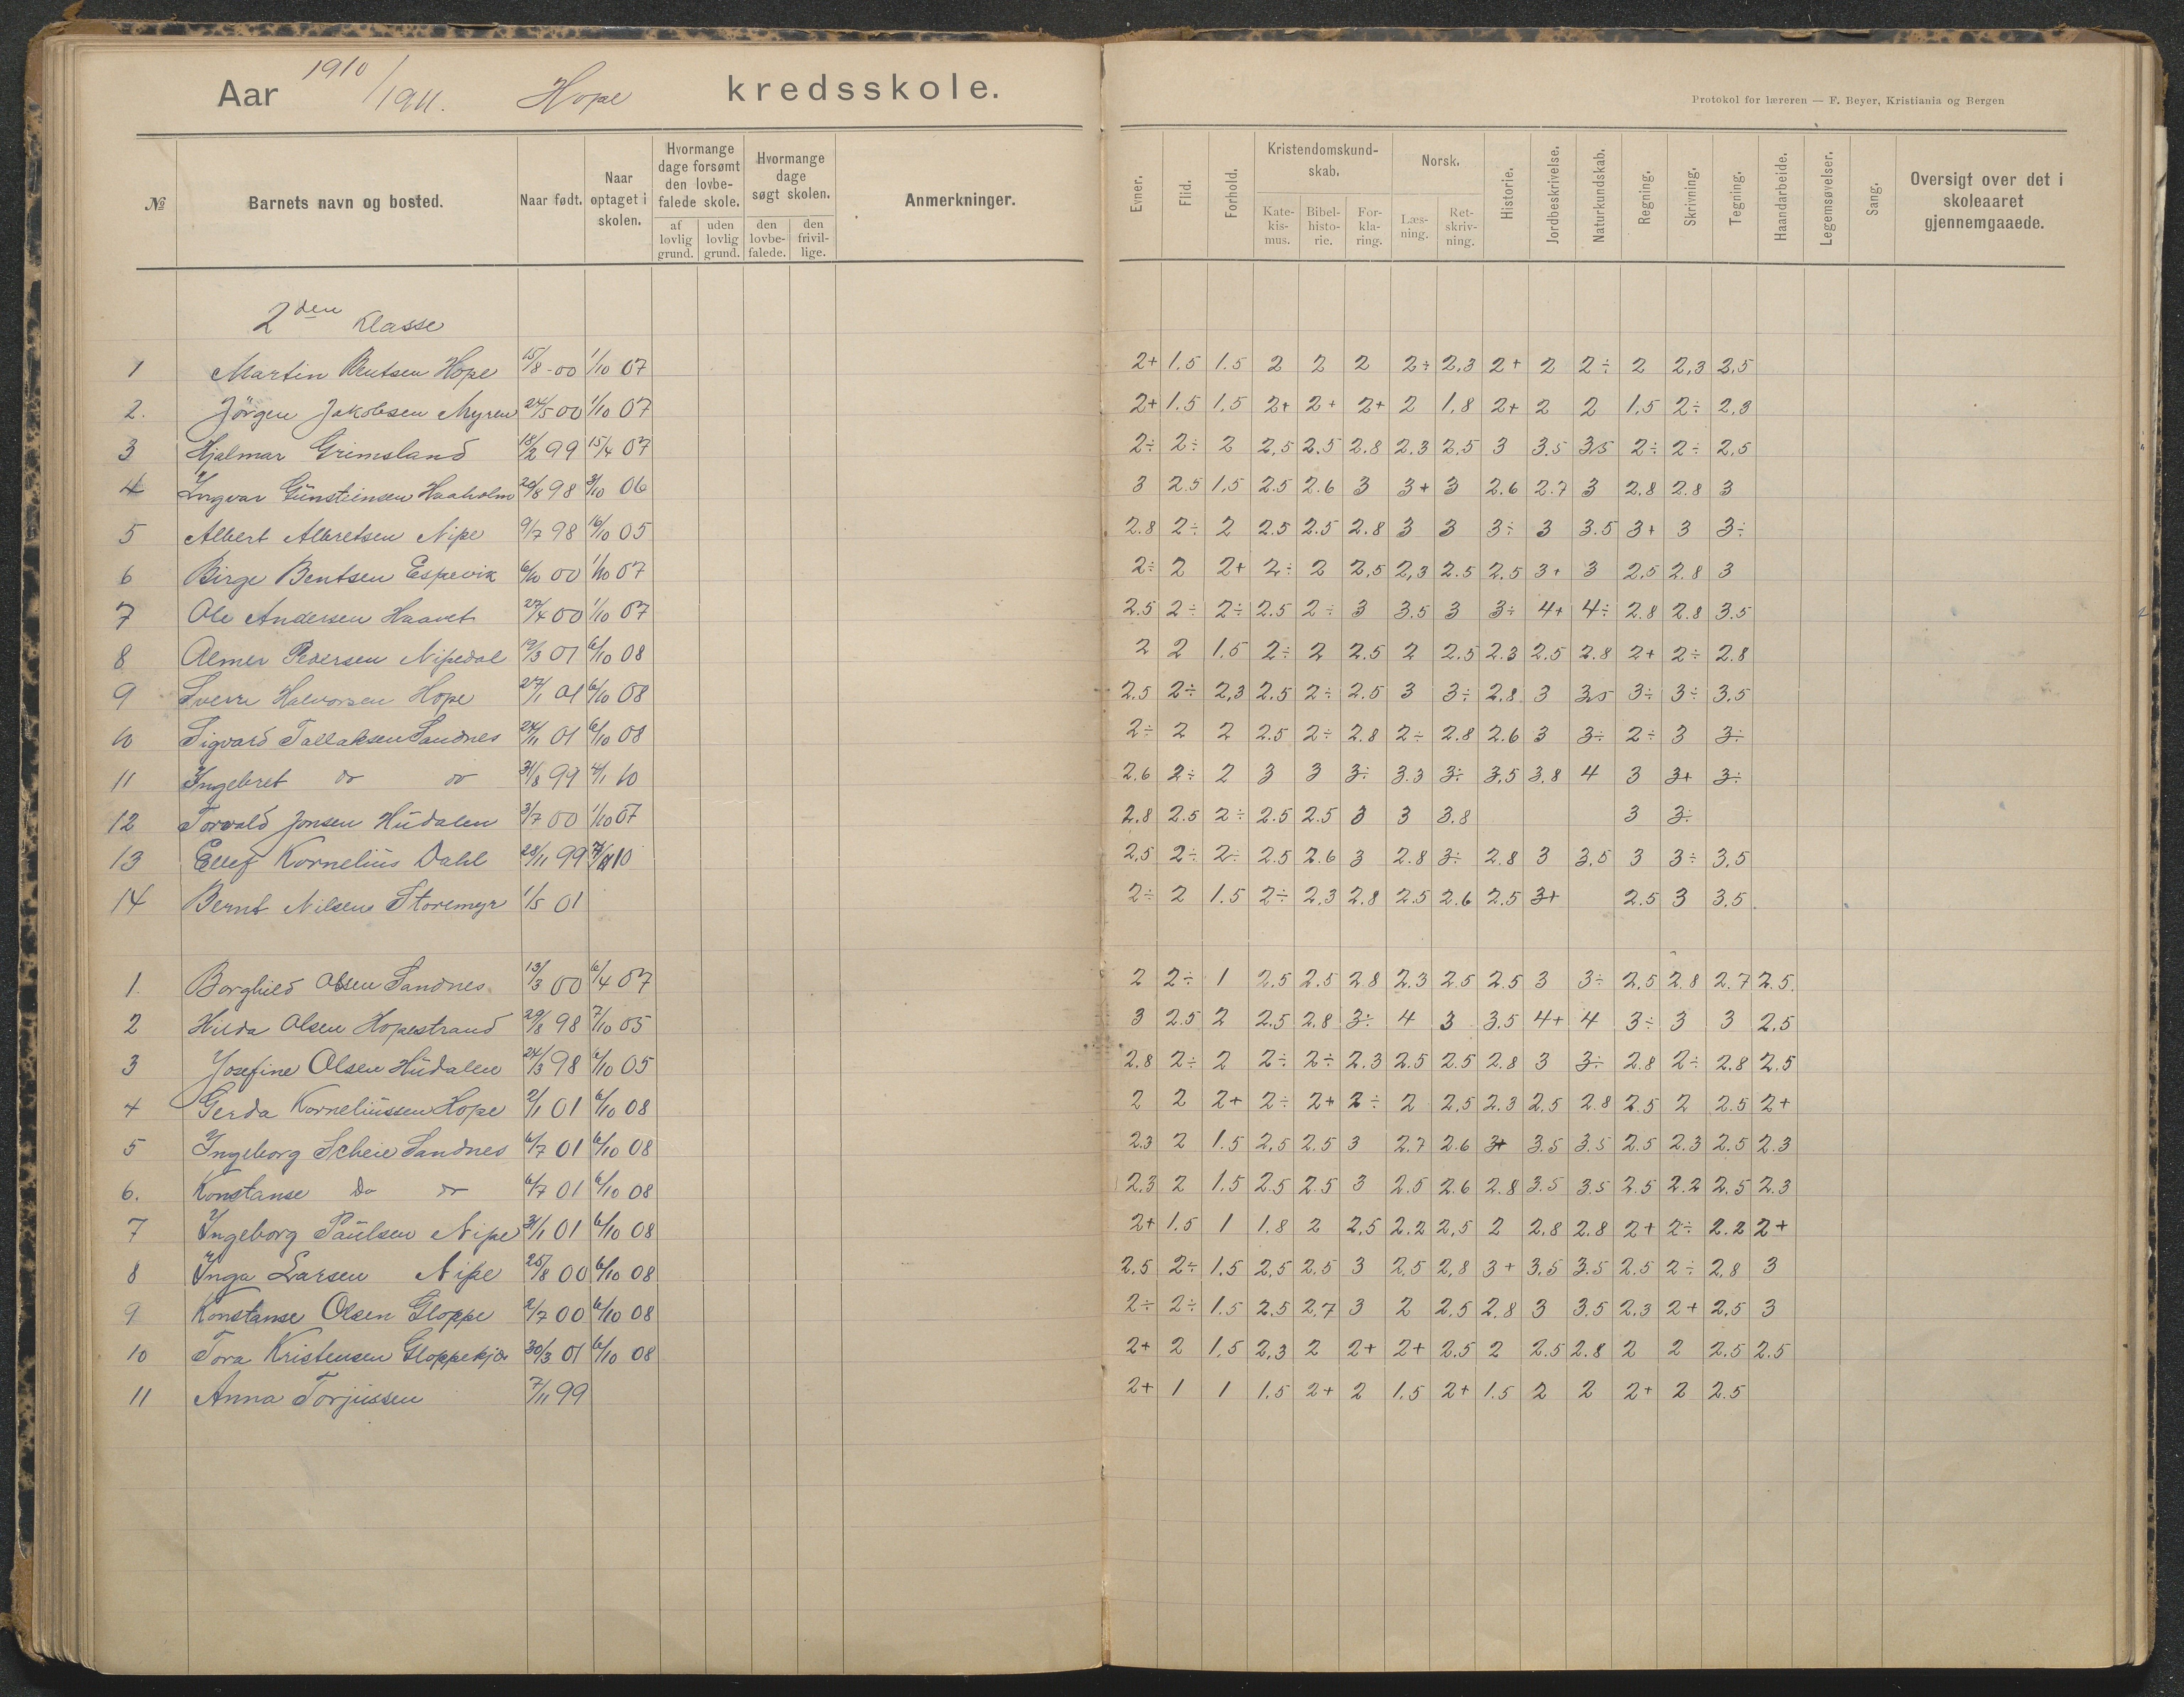 Aar 1910/1911. Hope kredsskole.
Protokol for læreren — F. Beyer, Kristiania og Bergen
№ Barnets navn og bosted. Naar født. Naar optaget i skolen. Hvormange dage forsømt den lovbefalede skole. af lovlig grund. uden lovlig grund. Hvormange dage søgt skolen. den lovbefalede. den frivillige. Anmerkninger. Evner. Flid. Forhold. Kristendomskundskab. Katekismus. Bibelhistorie. Forklaring. Norsk. Læsning. Retskrivning. Historie. Jordbeskrivelse. Naturkundskab. Regning. Skrivning. Tegning. Haandarbeide. Legemsøvelser. Sang. Oversigt over det i skoleaaret gjennemgaaede.
2den Klasse
1 Martin Bentsen Hope 15/8-00 1/10 07 2+ 1.5 1.5 2 2 2 2÷ 2,3 2+ 2 2÷ 2 2,3 2,5
2. Jörgen Jakobsen Myren 24/5 00 1/10 07 2+ 1.5 1,5 2+ 2+ 2+ 2 1,8 2+ 2 2 1,5 2÷ 2,3
3 Hjalmar Grimsland 18/2 99 15/4 07 2÷ 2÷ 2 2,5 2.5 2.8 2.3 2,5 3 3.5 3,5 2÷ 2÷ 2,5
4 Ingvar Gunstiensen Haaholm 20/8 98 3/10 06 3 2.5 1,5 2.5 2.6 3 3+ 3 2.6 2.7 3 2,8 2.8 3
5 Albert Albretsen Nipe 9/7 98 16/10 05 2.8 2÷ 2 2.5 2.5 2.8 3 3 3÷ 3 3.5 3+ 3 3÷
6 Birge Bentsen Espevik 6/10 00 1/10 07 2÷ 2 2+ 2÷ 2 2,5 2,3 2.5 2.5 3+ 3 2,5 2.8 3
7 Ole Andersen Haavet 27/4 00 1/10 07 2.5 2÷ 2÷ 2.5 2÷ 3 3.5 3 3÷ 4+ 4÷ 2.8 2.8 3.5
8 Almer Pedersen Nipedal 19/3 01 6/10 08 2 2 1.5 2÷ 2 2.5 2 2.5 2.3 2.5 2.8 2+ 2÷ 2.8
9 Sverre Halvorsen Hope 27/1 01 6/10 08 2,5 2÷ 2,3 2.5 2÷ 2.5 3 3÷ 2.8 3 3,5 3÷ 3÷ 3.5
10 Sigvard Tallaksen Sandnes 24/11 01 6/10 08 2÷ 2 2 2.5 2÷ 2.8 2÷ 2.8 2.6 3 3÷ 2÷ 3 3÷
11 Ingebret do do 31/8 99 4/1 10 2.6 2÷ 2 3 3 3÷ 3.3 3÷ 3,5 3,8 4 3 3+ 3÷
12 Torvald Jonsen Hüdalen 3/7 00 1/10 07 2.8 2.5 2÷ 2.5 2.5 3 3 3.8 3 3÷
13 Ellef Kornelius Dahl 28/11 99 10 2,5 2÷ 2÷ 2.5 2.6 3 2.8 3÷ 2.8 3 3,5 3 3÷ 3,5
14 Bernt Nilsen Storemyr 1/5 01 2÷ 2 1.5 2÷ 2,3 2.8 2.5 2.6 2.5 3+ 2.5 3 3.5
1. Borghild Olsen Sandnes 13/3 00 6/4 07 2 2÷ 1 2.5 2.5 2.8 2.3 2.5 2.5 3 3÷ 2,5 2.8 2.7 2.5.
2 Hilda Olsen Hopestrand 29/8 98 7/10 05 3 2.5 2 2.5 2,8 3÷ 4 3 3.5 4+ 4 3÷ 3 3 2,5
3 Josefine Olsen Hüdalen 24/3 98 6/10 05 2,8 2÷ 2 2÷ 2÷ 2.3 2.5 2.5 2.8 3 3÷ 2.8 2÷ 2.8 2.5
4 Gerda Korneliussen Hope 2/1 01 6/10 08 2 2 2+ 2÷ 2+ 2÷ 2 2,5 2.3 2,5 2.8 2.5 2 2.5 2+
5 Ingeborg Scheie Sandnes 6/7 01 6/10 08 2.3 2 1.5 2,5 2.5 3 2.7 2.6 3+ 3.5 3.5 2.5 2.3 2,5 2.3
6. Konstanse Do do 6/7 01 6/10 08 2,3 2 1,5 2.5 2.5 3 2.5 2.6 2.8 3.5 3.5 2.5 2.2 2,5 2.3
7 Ingeborg Paülsen Nipe 31/1 01 6/10 08 2+ 1.5 1 1.8 2 2,5 2.2 2,5 2 2.8 2.8 2+ 2÷ 2.2 2+
8 Inga Larsen Nipe 25/8 00 6/10 08 2.5 2÷ 1.5 2,5 2,5 3 2,5 2,8 3+ 3.5 3.5 2.5 2÷ 2,8 3
9 Konstanse Olsen Gloppe 2/7 00 6/10 08 2÷ 2÷ 1.5 2.5 2.7 3 2 2,5 2.8 3 3.5 2,3 2+ 2,5 3
10 Tora Kristensen Gloppekjær 30/3 01 6/10 08 2+ 2 1,5 2,3 2 2+ 2+ 2.5 2 2.5 2.8 2 2 2.5 2.5
11 Anna Torjussen 7/11 99 2+ 1 1 1.5 2+ 2 1.5 2+ 1.5 2 2 2+ 2 2.5